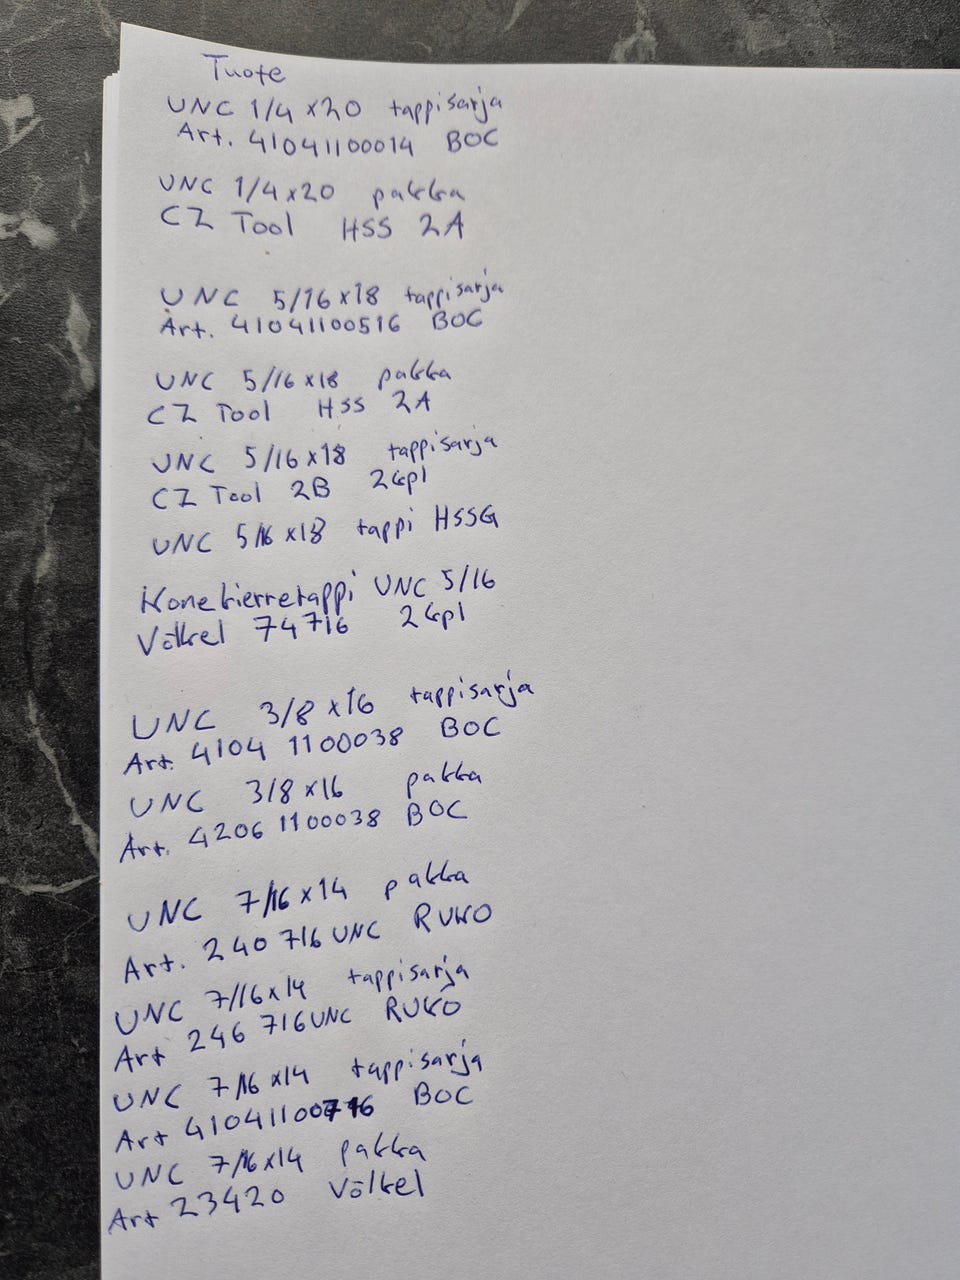 Tuote
UNC 1/4 x20 tappisarja
Art. 41041100014 BOC
UNC 1/4 x20 pakka
CZ Tool HSS 2A
UNC 5/16 x18 tappisarja
Art. 41041100516 BOC
UNC 5/16 x18 pakka
CZ Tool HSS 2A
UNC 5/16 x18 tappisarja
CZ Tool 2B 2kpl
UNC 5/16 x18 tappi HSSG
Konekierretappi UNC 5/16
Völkel 74716 2kpl
UNC 3/8 x16 tappisarja
Art. 4104 1100038 BOC
UNC 3/8 x16 pakka
Art. 4206 1100038 BOC
UNC 7/16 x14 pakka
Art. 240 716 UNC RUKO
UNC 7/16 x14 tappisarja
Art 246 716 UNC RUKO
UNC 7/16 x14 tappisarja
Art 41041100716 BOC
UNC 7/16 x14 pakka
Art 23420 Völkel